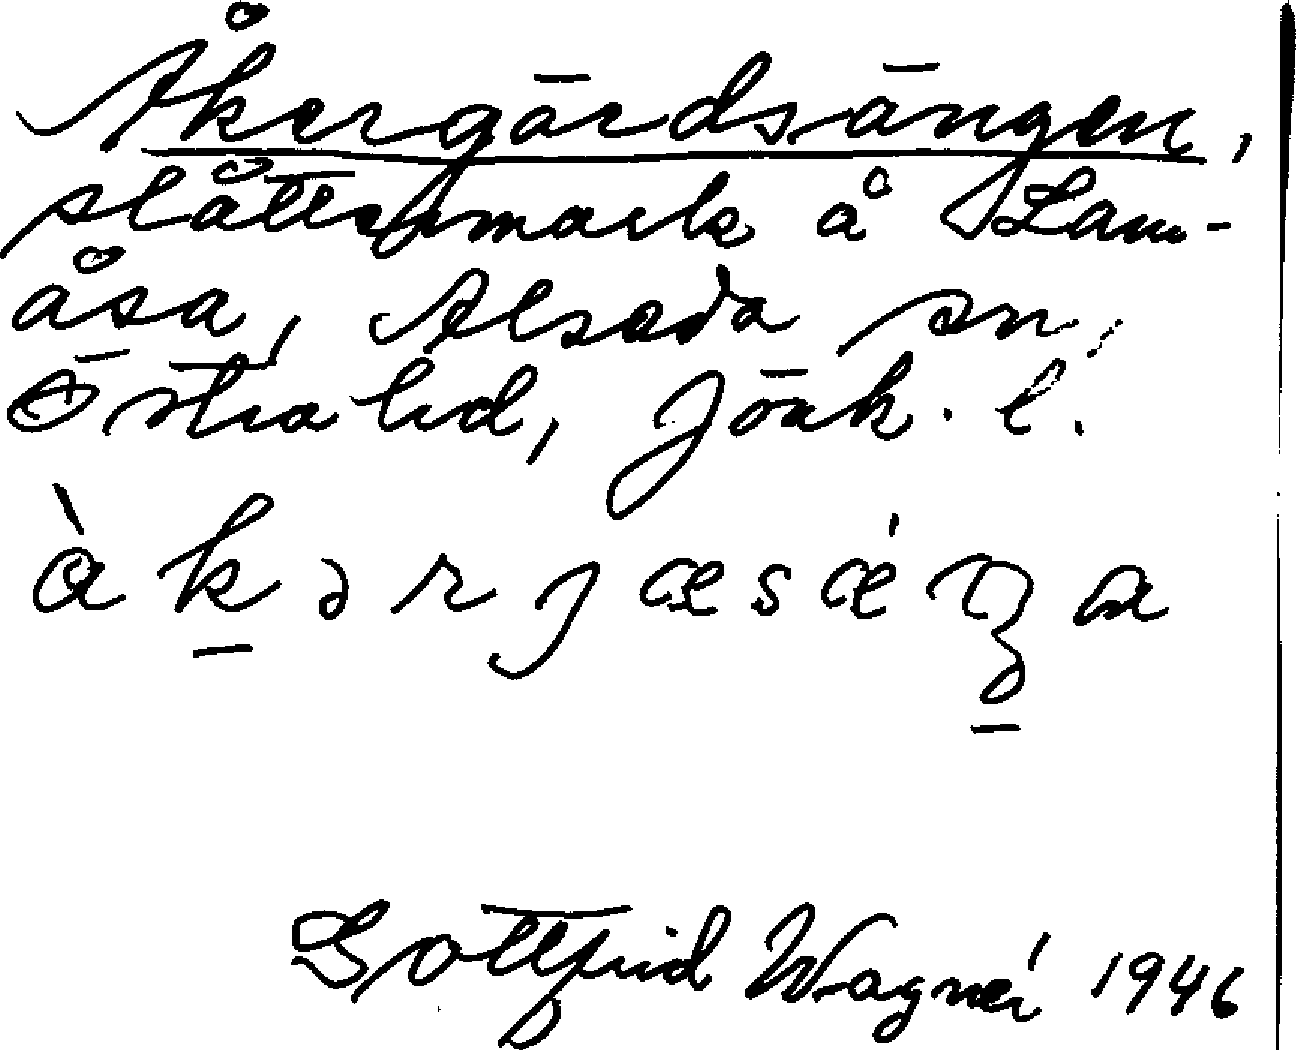 Åkergärdsängen,
slåttermark å Lam-
åsa, Alseda sn,
Östra hd, Jönk. l.
Gottfrid Wagnér 1946